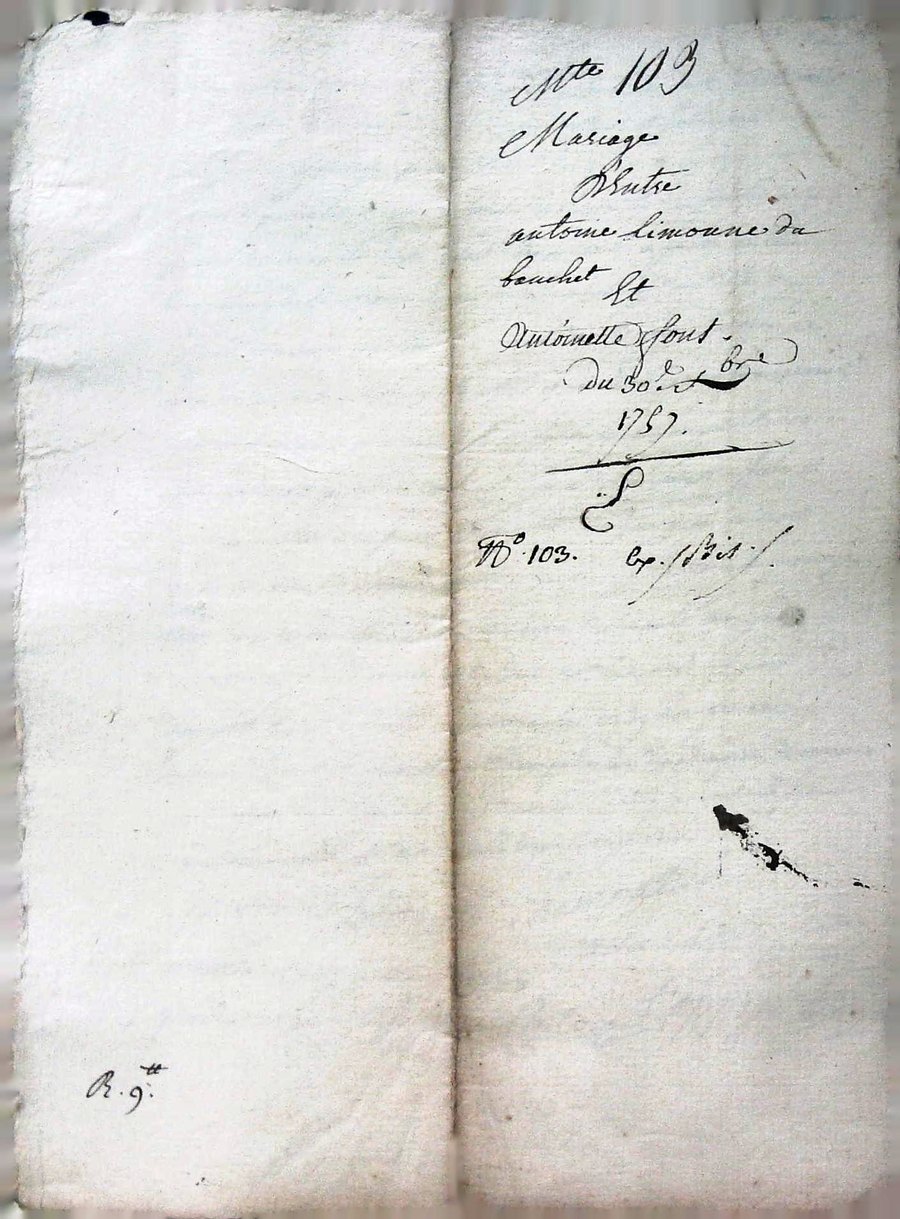 Mte 103
Mariage
D'Entre
antoine limoune du
bouchet Et
Antoinette font.
du 30e xbre
1757.
No. 103. ex. Bis.
R. 9.tt